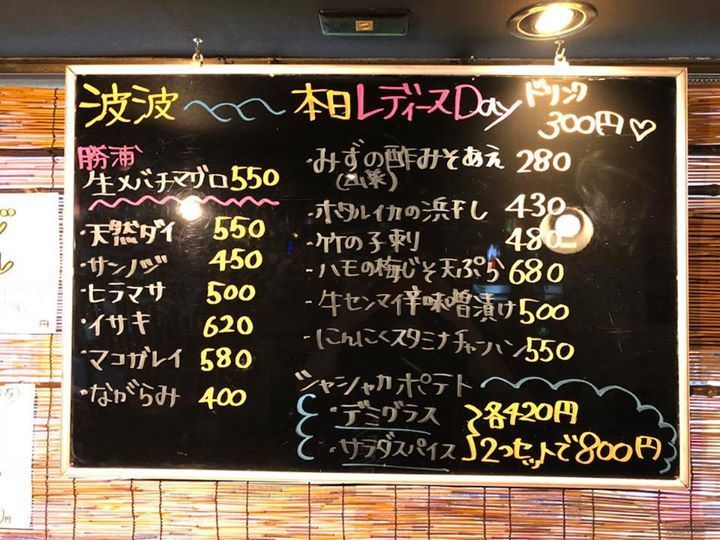 波波 本日レディースDay ドリンク
300円♡
勝浦
生メバチマグロ 550
・天然ダイ 550
・サンノジ 450
・ヒラマサ 500
・イサキ 620
・マコガレイ 580
・ながらみ 400
・みずの酢みそあえ 280
(山菜)
・ホタルイカの浜干し 430
・竹の子刺 480
・ハモの梅じそ天ぷら 680
・牛センマイ辛味噌漬け 500
・にんにくスタミナチャーハン 550
シャシャカポテト
・デミグラス 各420円
・サラダスパイス 2つセットで800円
円
0円